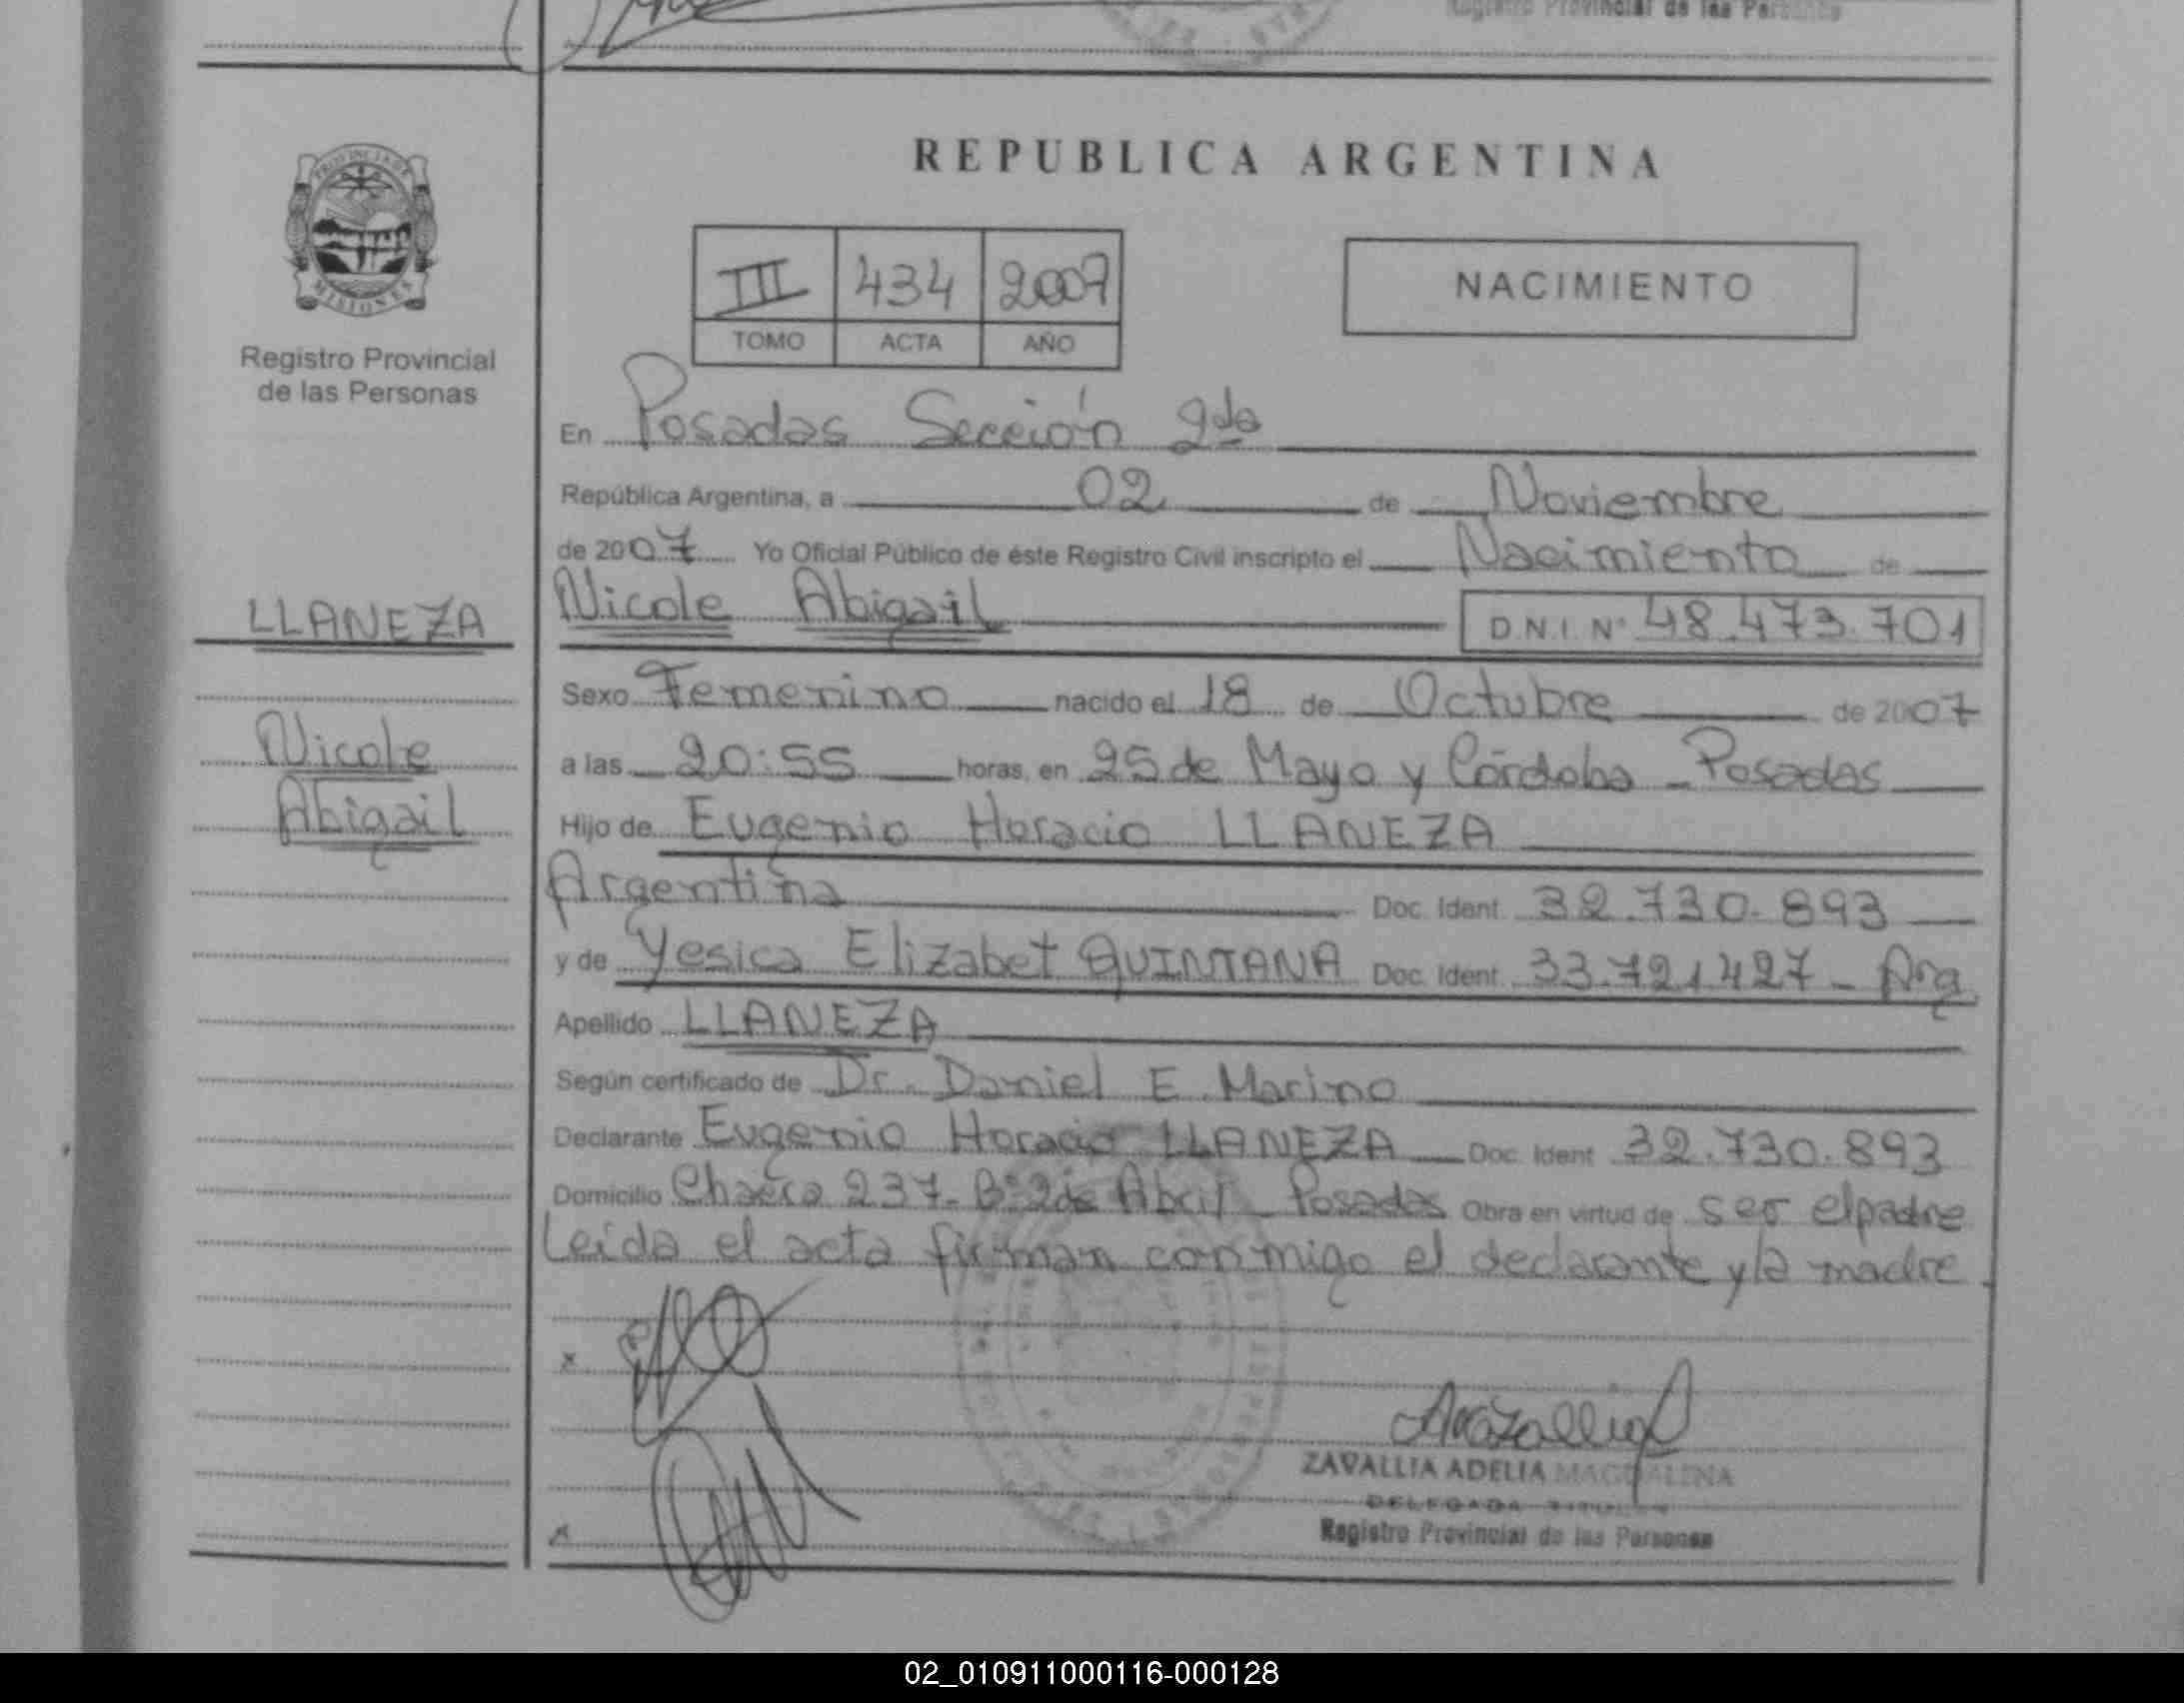 Registro Provincial de las Personas
PROVINCIA DE
MISIONES
Registro Provincial
de las Personas
LLANEZA
Nicole
Abigail
REPUBLICA ARGENTINA
III 434 2007
TOMO ACTA AÑO
NACIMIENTO
En Posadas Sección 2da
República Argentina, a 02 de Noviembre
de 2007 Yo Oficial Público de éste Registro Civil inscripto el Nacimiento de
Nicole Abigail D.N.I. Nº 48.473.701
Sexo Femenino nacido el 18 de Octubre de 2007
a las 20:55 horas, en 25 de Mayo y Córdoba - Posadas
Hijo de Eugenio Horacio LLANEZA
Argentina Doc. Ident. 32.730.893
y de Yesica Elizabet QUINTANA Doc. Ident. 33.721.427 - Arg
Apellido LLANEZA
Según certificado de Dr. Daniel E. Marino
Declarante Eugenio Horacio LLANEZA Doc. Ident 32.730.893
Domicilio Chacra 237- Bº 2 de Abril - Posadas Obra en virtud de ser el padre
Leída el acta firman conmigo el declarante y la madre.
x
x
ZAVALLIA ADELIA MAGDALENA
DELEGADA TITULAR
Registro Provincial de las Personas
02_010911000116-000128